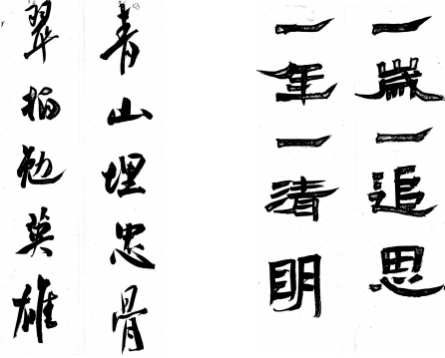 一歲一追思
一年一清明
青山埋忠骨
翠柏勉英雄